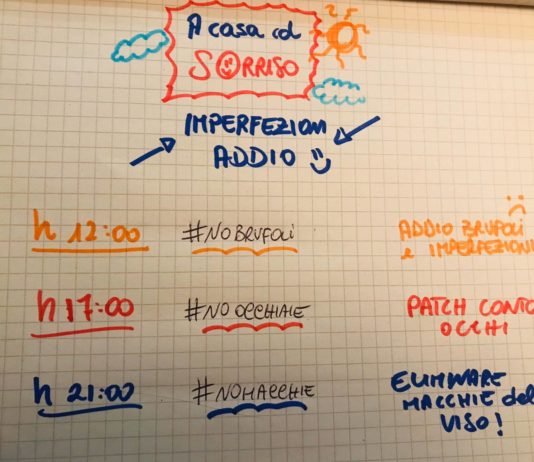 A casa col
SORRISO
IMPERFEZIONI
ADDIO
h 12:00 #NOBRUFOLI ADDIO BRUFOLI
e IMPERFEZIONI
h 17:00 #NOOCCHIAIE PATCH CONTO
OCCHI
h 21:00 #NOMACCHIE ELIMINARE
MACCHIE del
VISO!